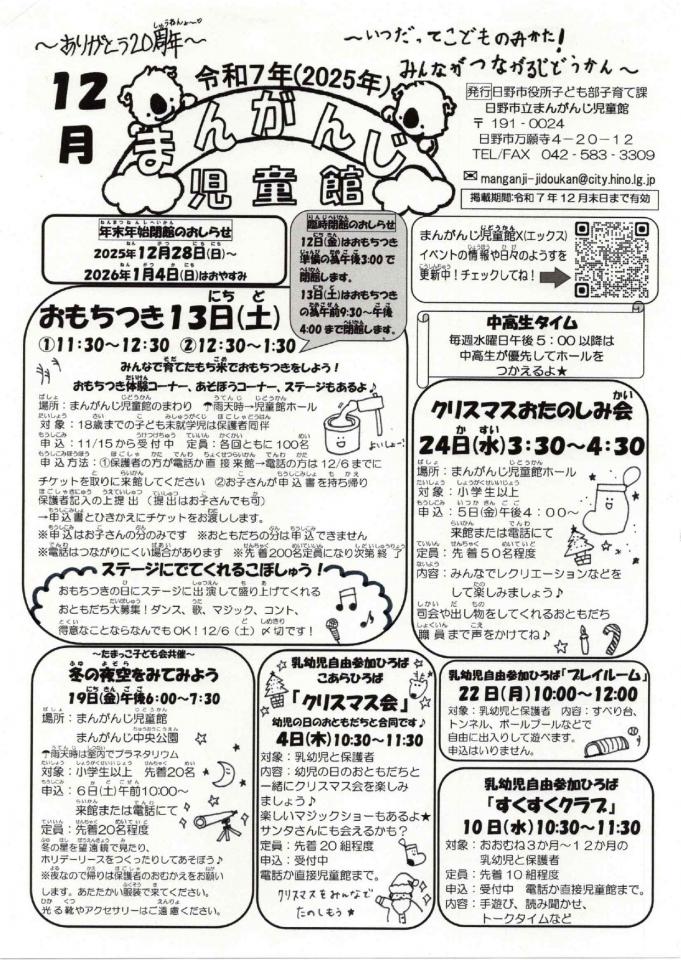 ～ありがとう20周年～
～いつだってこどものみかた!
みんながつながるじどうかん～
12月
令和7年(2025年)
まんがんじ
児童館
発行 日野市役所子ども部子育て課
日野市立まんがんじ児童館
〒191-0024
日野市万願寺4-20-12
TEL/FAX 042-583-3309
✉ manganji-jidoukan@city.hino.lg.jp
掲載期間:令和7年12月末日まで有効
年末年始閉館のおしらせ
2025年12月28日(日)～
2026年1月4日(日)はおやすみ
臨時閉館のおしらせ
12日(金)はおもちつき
準備の為午後3:00で
閉館します。
13日(土)はおもちつき
の為午前9:30～午後
4:00まで閉館します。
まんがんじ児童館X(エックス)
イベントの情報や日々のようすを
更新中!チェックしてね!
おもちつき13日(土)
①11:30～12:30 ②12:30～1:30
みんなで育てたもち米でおもちつきをしよう!
おもちつき体験コーナー、あそぼうコーナー、ステージもあるよ♪
場所:まんがんじ児童館のまわり ☂雨天時→児童館ホール
対象:18歳までの子ども未就学児は保護者同伴
申込:11/15から受付中 定員:各回ともに100名
申込方法:①保護者の方が電話か直接来館→電話の方は12/6までに
チケットを取りに来館してください ②お子さんが申込書を持ち帰り
保護者記入の上提出(提出はお子さんでも可)
→申込書とひきかえにチケットをお渡しします。
※申込はお子さんの分のみです ※おともだちの分は申込できません
※電話はつながりにくい場合があります ※先着200名定員になり次第終了
よいしょー!
ステージにでてくれるこぼしゅう!
おもちつきの日にステージに出演して盛り上げてくれる
おともだち大募集!ダンス、歌、マジック、コント、
得意なことならなんでもOK!12/6(土)〆切です!
中高生タイム
毎週水曜日午後5:00以降は
中高生が優先してホールを
つかえるよ★
クリスマスおたのしみ会
24日(水)3:30～4:30
場所:まんがんじ児童館ホール
対象:小学生以上
申込:5日(金)午後4:00～
来館または電話にて
定員:先着50名程度
内容:みんなでレクリエーションなどを
して楽しみましょう♪
司会や出し物をしてくれるおともだち
職員まで声をかけてね♪
～たまっこ子ども会共催～
冬の夜空をみてみよう
19日(金)午後6:00～7:30
場所:まんがんじ児童館
まんがんじ中央公園
☂雨天時は室内でプラネタリウム
対象:小学生以上 先着20名
申込:6日(土)午前10:00～
来館または電話にて
定員:先着20名程度
冬の星を望遠鏡で見たり、
ホリデーリースをつくったりしてあそぼう♪
※夜なので帰りは保護者のおむかえをお願い
します。あたたかい服装で来てください。
光る靴やアクセサリーはご遠慮ください。
乳幼児自由参加ひろば
こあらひろば
「クリスマス会」
幼児の日のおともだちと合同です♪
4日(木)10:30～11:30
対象:乳幼児と保護者
内容:幼児の日のおともだちと
一緒にクリスマス会を楽しみ
ましょう♪
楽しいマジックショーもあるよ★
サンタさんにも会えるかも?
定員:先着20組程度
申込:受付中
電話か直接児童館まで。
クリスマスをみんなで
たのしもう★
乳幼児自由参加ひろば「プレイルーム」
22日(月)10:00～12:00
対象:乳幼児と保護者 内容:すべり台、
トンネル、ボールプールなどで
自由に出入りして遊べます。
申込はいりません。
乳幼児自由参加ひろば
「すくすくクラブ」
10日(水)10:30～11:30
対象:おおむね3か月～12か月の
乳幼児と保護者
定員:先着10組程度
申込:受付中 電話か直接児童館まで。
内容:手遊び、読み聞かせ、
トークタイムなど